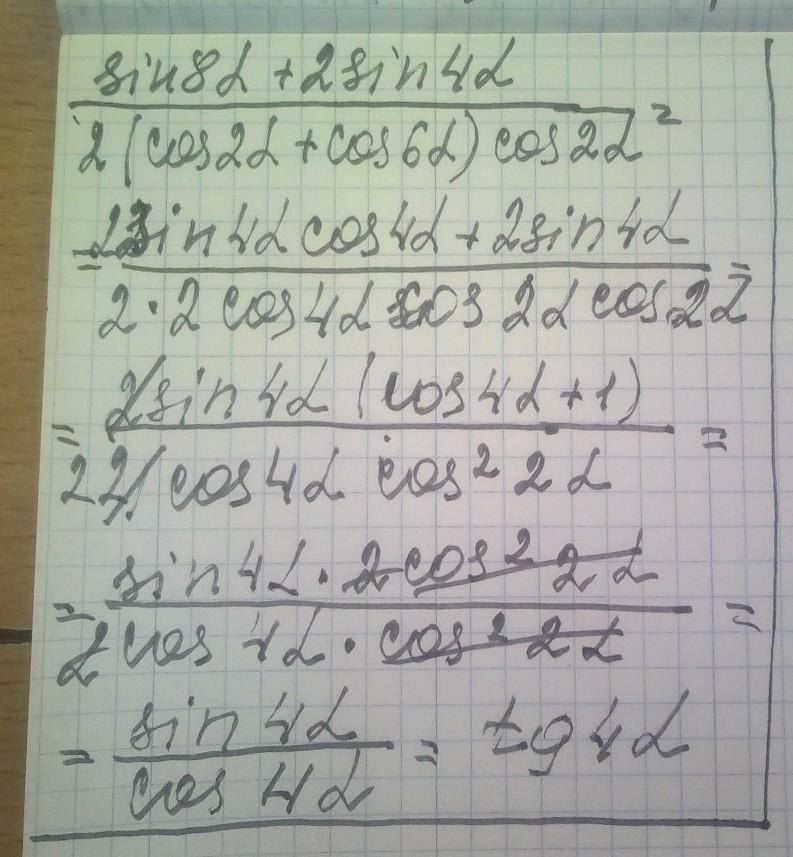 sin8α + 2sin4α
2(cos2α + cos6α) cos2α =
= 2sin4α cos4α + 2sin4α =
2·2 cos4α cos2α cos2α
= 2sin4α (cos4α + 1) =
2 2 cos4α cos² 2α
= sin4α · 2cos² 2α =
2 cos 4α · cos² 2α
= sin 4α = tg 4α
cos 4α